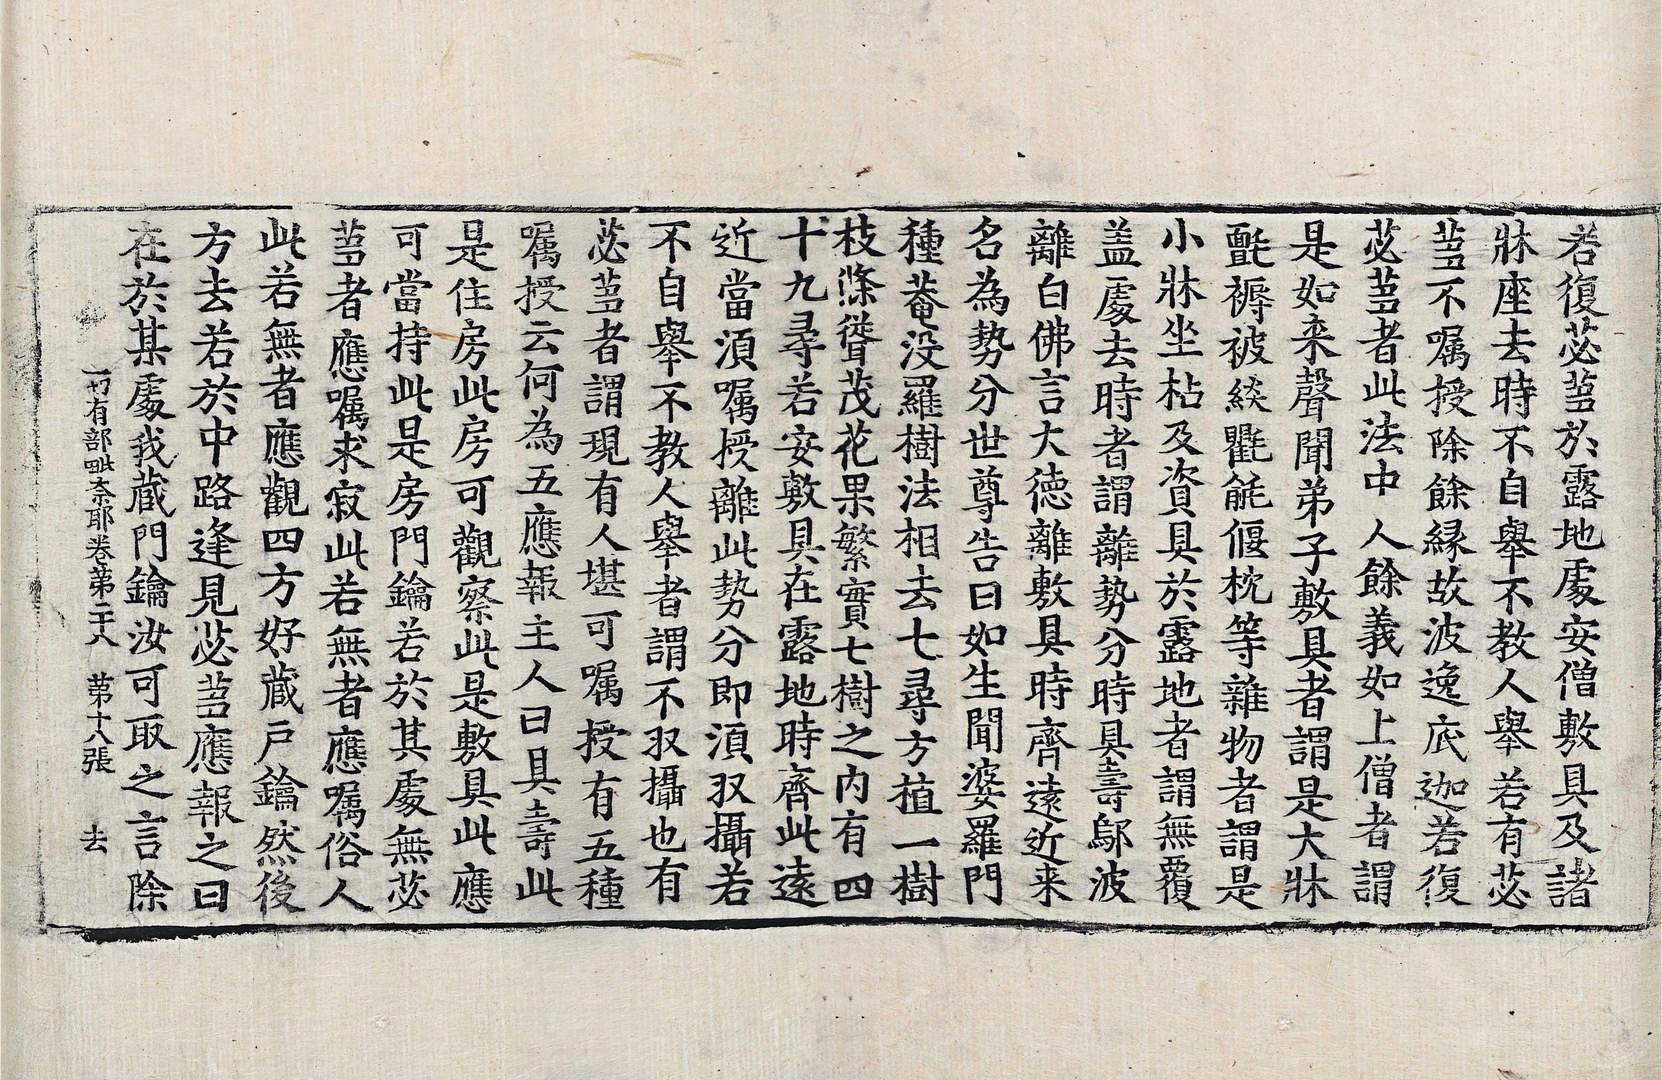 若復苾蒭於露地處安僧敷具及諸
牀座去時不自舉不教人舉若有苾
蒭不嘱授除餘縁故波逸底迦若復
苾蒭者此法中人餘義如上僧者謂
是如来聲聞弟子敷具者謂是大牀
氈褥被緂氍毹偃枕等雜物者謂是
小牀坐枯及資具於露地者謂無覆
盖處去時者謂離勢分時具壽鄔波
離白佛言大德離敷具時齊遠近来
名為勢分世尊告曰如生聞婆羅門
種菴没羅樹法相去七尋方植一樹
枝條聳茂花果繁實七樹之内有四
十九尋若安敷具在露地時齊此遠
近當須嘱授離此勢分即須収攝若
不自舉不教人舉者謂不収攝也有
苾蒭者謂現有人堪可嘱授有五種
嘱授云何為五應報主人曰具壽此
是住房此房可觀察此是敷具此應
可當持此是房門鑰若於其處無苾
蒭者應嘱求寂此若無者應嘱俗人
此若無者應觀四方好藏户鑰然後
方去若於中路逢見苾蒭應報之曰
在於某處我藏門鑰汝可取之言除
一切有部毗奈耶卷第二十八　第十八張　去